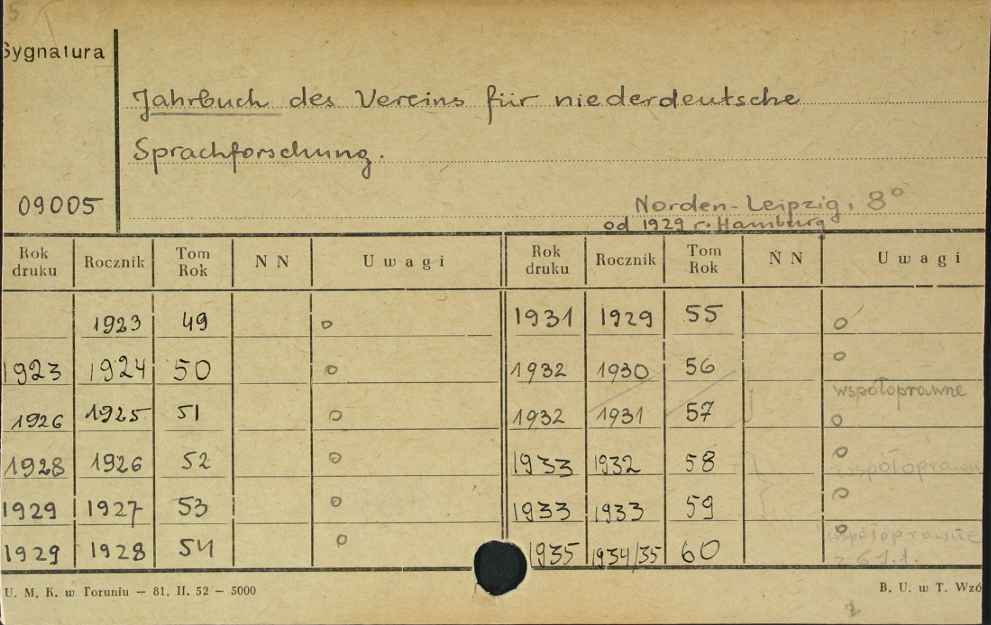 5
Sygnatura
Jahrbuch des Vereins für niederdeutsche
Sprachforschung.
09005
Norden-Leipzig, 8°
od 1929 r. Hamburg
Rok druku Rocznik Tom Rok N N Uwagi Rok druku Rocznik Tom Rok N N Uwagi
1923 49 o 1931 1929 55 o
1923 1924 50 o 1932 1930 56 o
współoprawne
1926 1925 51 o 1932 1931 57 o
1928 1926 52 o 1933 1932 58 o
współoprawne
1929 1927 53 o 1933 1933 59 o
1929 1928 54 o 1935 1934/35 60 o
współoprawne
z 61 t.
U. M. K. w Toruniu — 81. II. 52 — 5000
B. U. w T. Wzó